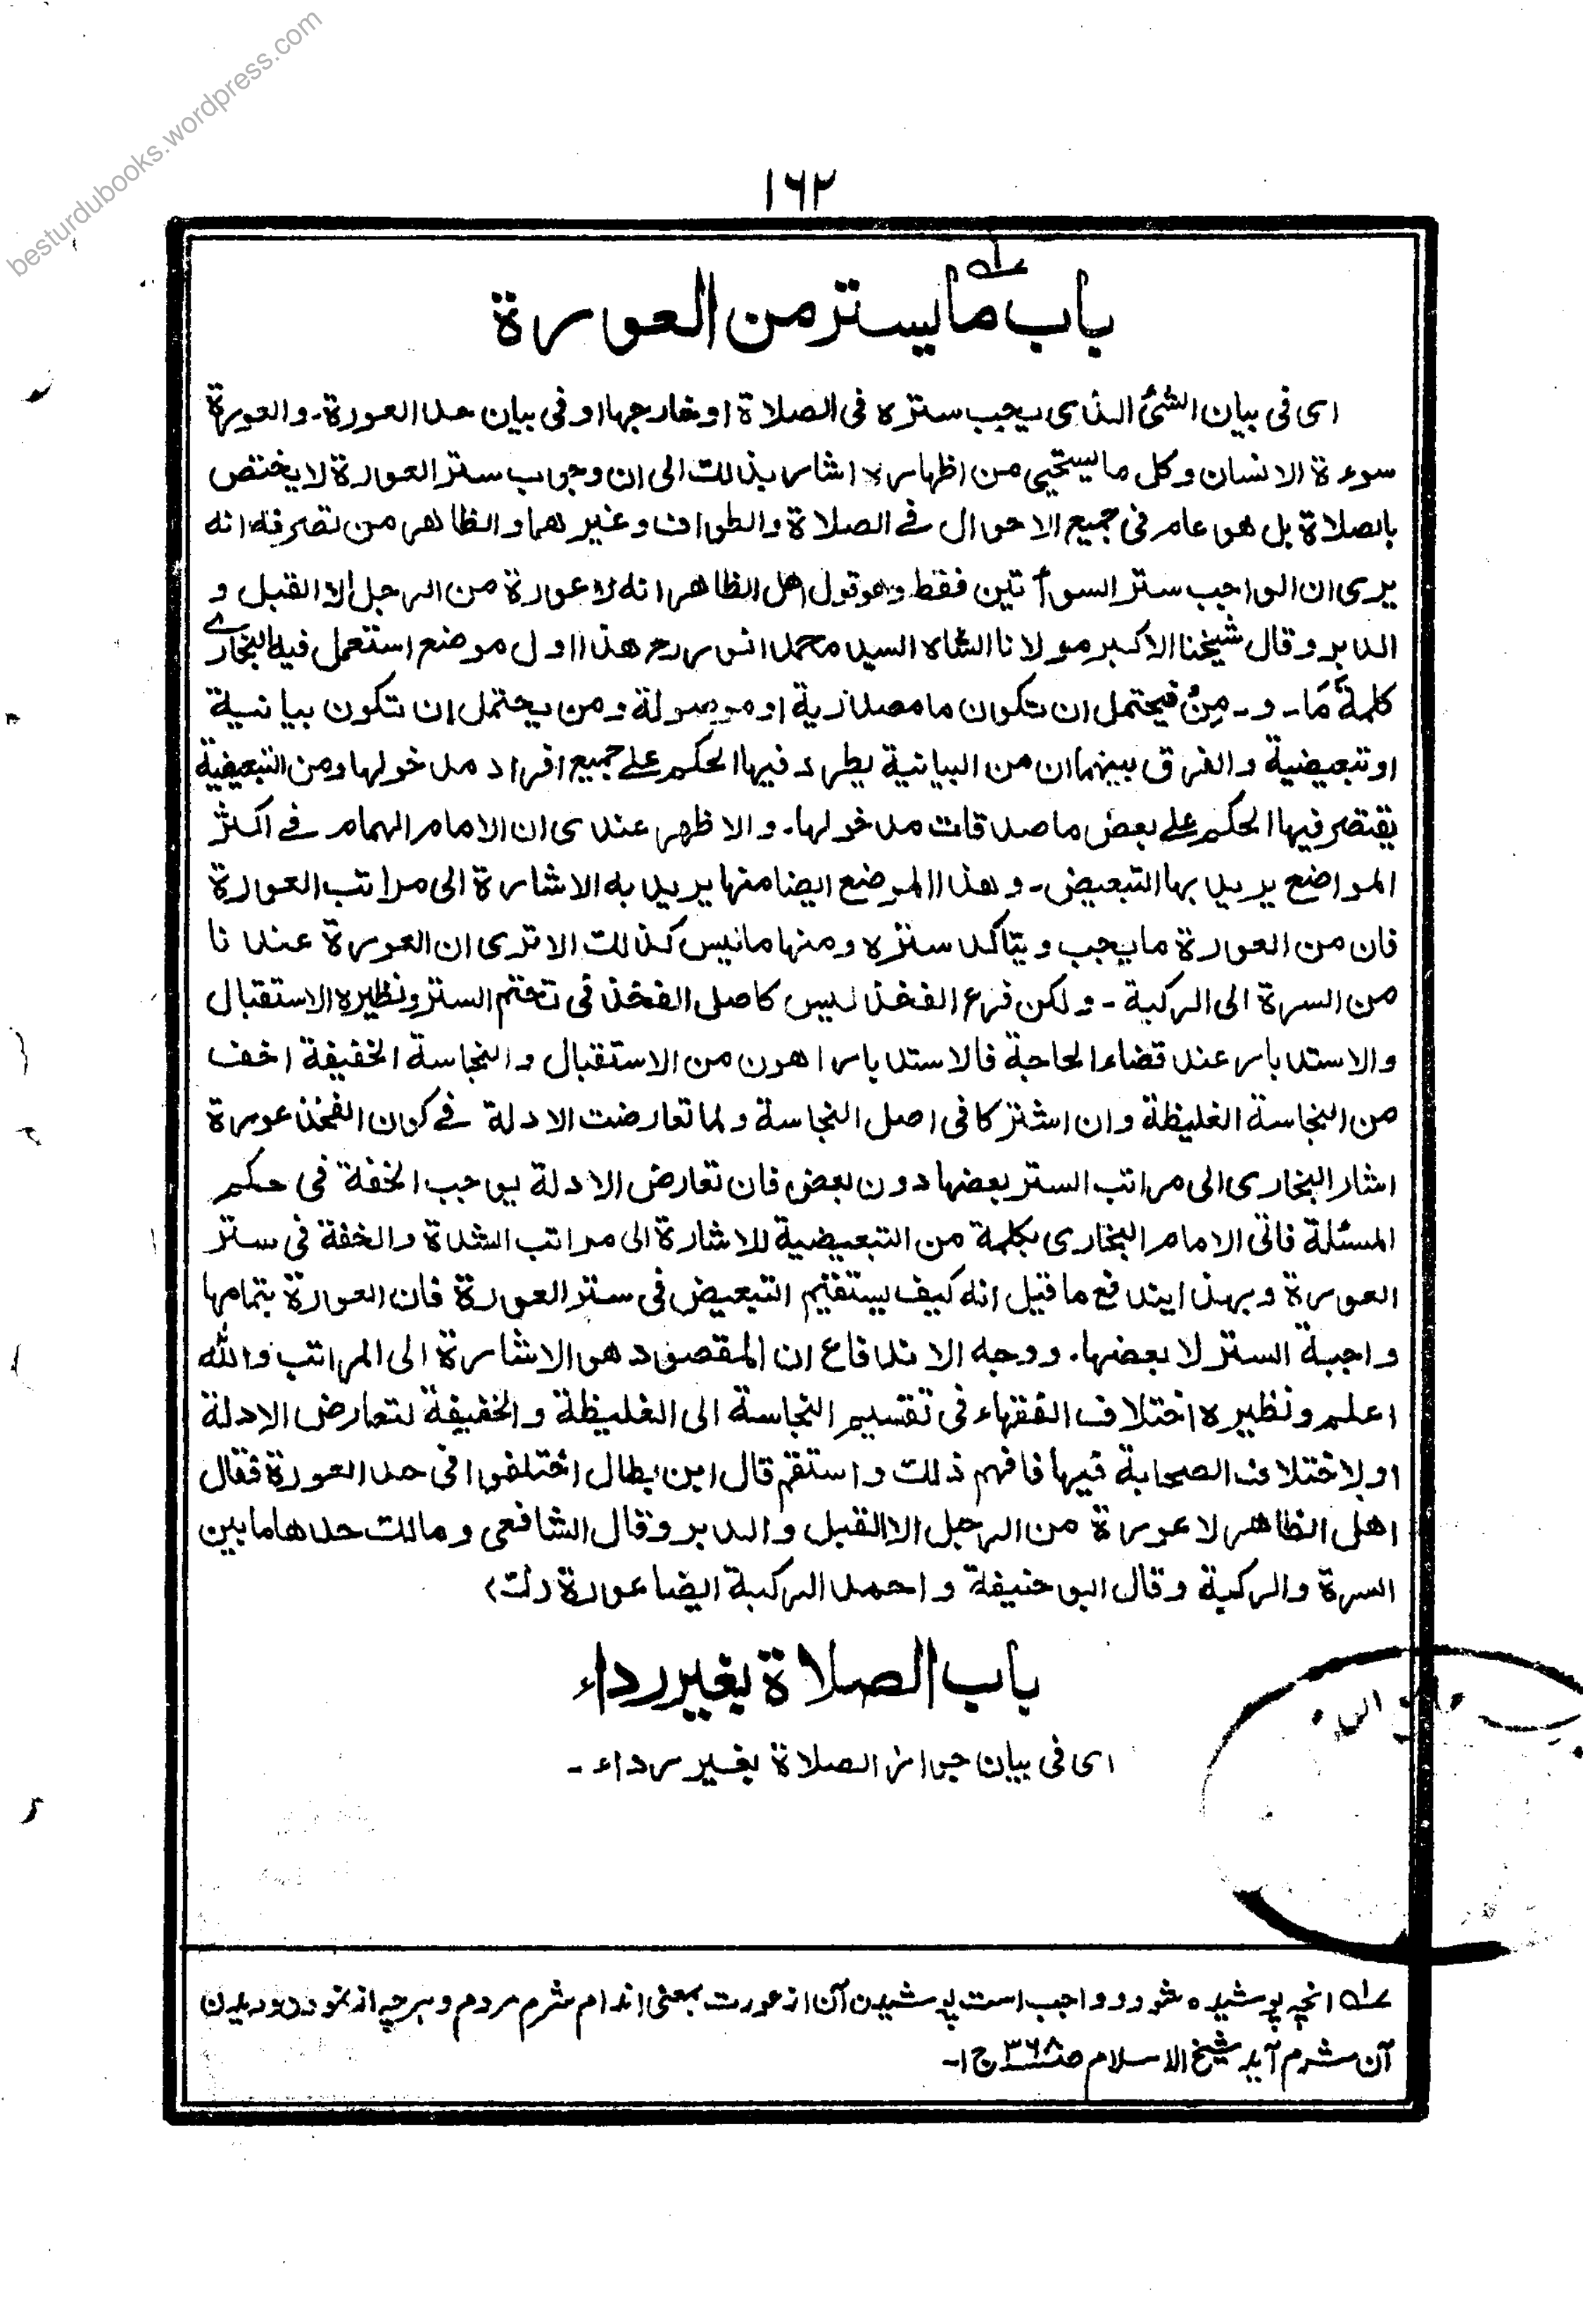 besturdubooks.wordpress.com
۱۶۲
باب ما یستر من العورة
ای فی بیان الشئ الذی یجب ستره فی الصلاة او خارجها او فی بیان حد العورة۔ والعورة
سوءة الانسان وکل ما یستحیی من اظهاره اشار بذلك الی ان وجوب ستر العورة لا یختص
بالصلاة بل هو عام فی جمیع الاحوال فی الصلاة والطواف وغیرهما والظاهر من تصرفه انه
یری ان الواجب ستر السوأتین فقط وهو قول اهل الظاهر انه لا عورة من الرجل الا القبل و
الدبر وقال شیخنا الاکبر مولانا الشاه السید محمد انور رح هذا اول موضع استعمل فیه البخاری
کلمة مَا۔ و۔ مِنْ فیحتمل ان تکون ما مصدریة او موصولة ومن یحتمل ان تکون بیانیة
او تبعیضیة والفرق بینهما ان من البیانیة یطرد فیها الحکم علی جمیع افراد مدخولها ومن التبعیضیة
یقتصر فیها الحکم علی بعض ما صدقات مدخولها۔ والاظهر عندی ان الامام الهمام فی اکثر
المواضع یرید بها التبعیض۔ وهذا الموضع ایضا منها یرید به الاشارة الی مراتب العورة
فان من العورة ما یجب ویتاکد ستره ومنها ما لیس کذلك الا تری ان العورة عندنا
من السرة الی الرکبة۔ ولکن فرع الفخذ لیس کاصل الفخذ فی تحتم الستر ونظیره الاستقبال
والاستدبار عند قضاء الحاجة فالاستدبار اهون من الاستقبال والنجاسة الخفیفة اخف
من النجاسة الغلیظة وان اشترکا فی اصل النجاسة ولما تعارضت الادلة فی کون الفخذ عورة
اشار البخاری الی مراتب الستر بعضها دون بعض فان تعارض الادلة یوجب الخفة فی حکم
المسئلة فاتی الامام البخاری بکلمة من التبعیضیة للاشارة الی مراتب الشدة والخفة فی ستر
العورة وبهذا یندفع ما قیل انه کیف یستقیم التبعیض فی ستر العورة فان العورة بتمامها
واجبة الستر لا بعضها۔ ووجه الاندفاع ان المقصود هو الاشارة الی المراتب والله
اعلم ونظیره اختلاف الفقهاء فی تقسیم النجاسة الی الغلیظة والخفیفة لتعارض الادلة
اولاختلاف الصحابة فیها فافهم ذلك واستقم قال ابن بطال اختلفوا فی حد العورة فقال
اهل الظاهر لا عورة من الرجل الا القبل والدبر وقال الشافعی ومالك حدها ما بین
السرة والرکبة وقال ابو حنیفة واحمد الرکبة ایضا عورة (ك)
باب الصلاة بغیر رداء
ای فی بیان جواز الصلاة بغیر رداء۔
۱؎ انچه پوشیده شود و واجب است پوشیدن آن از عورت بمعنی اندام شرم مردم و هرچه از نمودن و دیدن
آن شرم آید شیخ الاسلام ص۳۶۸ ج ۱۔